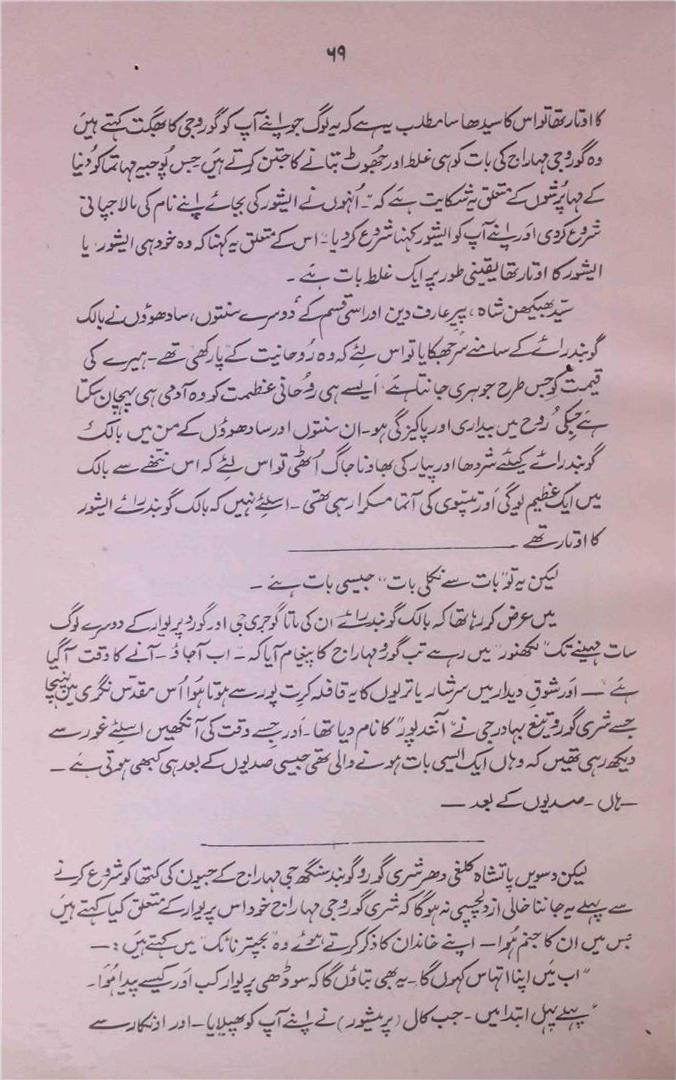 ۶۹
کا اوتار تھا تو اس کا سیدھا سا مطلب یہ ہے کہ یہ لوگ جو اپنے آپ کو گورو جی کا بھگت کہتے ہیں
وہ گورو جی مہاراج کی بات کو ہی غلط اور جھوٹ بتانے کا جتن کرتے ہیں جس پُوجیہ مہاتما کو دُنیا
کے مہاپُرشوں کے متعلق یہ شکایت ہے کہ۔ "اُنہوں نے ایشور کی بجائے اپنے نام کی مالا جپانی
شروع کر دی اَور اپنے آپ کو ایشور کہنا شروع کر دیا" اس کے متعلق یہ کہنا کہ وہ خود ہی ایشور یا
ایشور کا اوتار تھا یقینی طور پر ایک غلط بات ہے ۔
سیّد بھیکھن شاہ، پیر عارف دین اور اسی قسم کے دُوسرے سنتوں، سادھوؤں نے بالک
گوبند رائے کے سامنے سر جھکایا تو اس لئے کہ وہ رُوحانیت کے پارکھی تھے۔ ہیرے کی
قیمت کو جس طرح جوہری جانتا ہے اَیسے ہی رُوحانی عظمت کو وہ آدمی ہی پہچان سکتا
ہے جسکی رُوح میں بیداری اور پاکیزگی ہو۔ ان سنتوں اور سادھوؤں کے من میں بالک
گوبند رائے کیلئے شردھا اور پیار کی بھاونا جاگ اُٹھی تو اس لئے کہ اس ننھے سے بالک
میں ایک عظیم یوگی اَور تپسوی کی آتما مسکرا رہی تھی ۔ اسلئے نہیں کہ بالک گوبند رائے ایشور
کا اوتار تھے
لیکن یہ تو "بات سے نکلی بات" جیسی بات ہے ۔
میں عرض کر رہا تھا کہ بالک گوبند رائے ان کی ماتا گوجری جی اور گورو پریوار کے دوسرے لوگ
سات مہینے تک "لکھنور" میں رہے تب گورو مہاراج کا پیغام آیا کہ ۔ اب آ جاؤ۔ آنے کا وقت آ گیا
ہے" — اَور شوقِ دیدار میں سرشار یاتریوں کا یہ قافلہ کرت پور سے ہوتا ہُوا اُس مقدّس نگری میں پہنچا
جسے شری گورو تیغ بہادر جی نے "آنند پور" کا نام دیا تھا ۔ اَور جسے وقت کی آنکھیں اسلئے غور سے
دیکھ رہی تھیں کہ وہاں ایک ایسی بات ہونے والی تھی جیسی صدیوں کے بعد ہی کبھی ہوتی ہے —
— ہاں ۔ صدیوں کے بعد —
لیکن دسویں پاتشاہ کلغی دھر شری گورو گوبند سنگھ جی مہاراج کے جیون کی کتھا کو شروع کرنے
سے پہلے یہ جاننا خالی از دلچسپی نہ ہوگا کہ شری گورو جی مہاراج خود اس پریوار کے متعلق کیا کہتے ہیں
جس میں ان کا جنم ہُوا — اپنے خاندان کا ذکر کرتے ہوئے وہ "بچتر ناٹک" میں کہتے ہیں :۔
"اب میں اپنا اتہاس کہوں گا ۔ یہ بھی بتاؤں گا کہ سوڈھی پریوار کب اَور کیسے پیدا ہُوا۔
"پہلے پہل ابتدا میں ۔ جب کال (پرمیشور) نے اپنے آپ کو پھیلایا ۔ اور اونکار سے